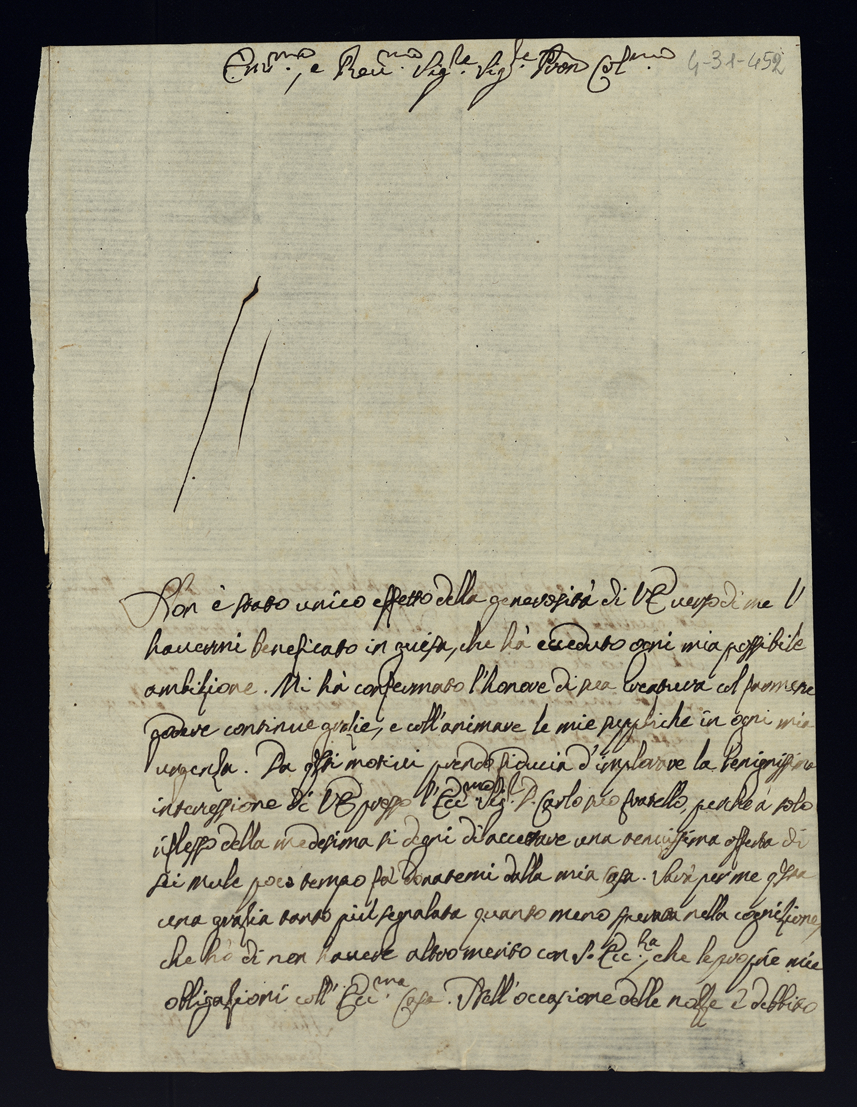 Em.mo, e Reu.mo Sig.re Sig.re Pron Col.mo
4-31-452
Non è stato unico effetto della generosità di VE verso di me l'
hauermi beneficato in guisa, che hà ecceduto ogni mia possibile
ambizione. Mi hà confermato l'honore di sua creatura col farmene
godere continue grazie, e coll'animare le mie suppliche in ogni mia
urgenza. Da q.sti motivi prendo fiducia d'implorare la benignissima
intercessione di VE presso l'Ecc.mo Sig.r D. Carlo suo fratello, perche à solo
riflesso della medesima si degni di accettare una tenuissima offerta di
sei mule poco tempo fà donatemi dalla mia Casa. Sarà per me q.sta
una grazia tanto più segnalata quanto meno sperata nella cognizione,
che hò di non hauere altro merito con S. Ecc.za, che le proprie mie
obligazioni coll'Ecc.ma Casa. Nell'occasione delle nozze è debbito